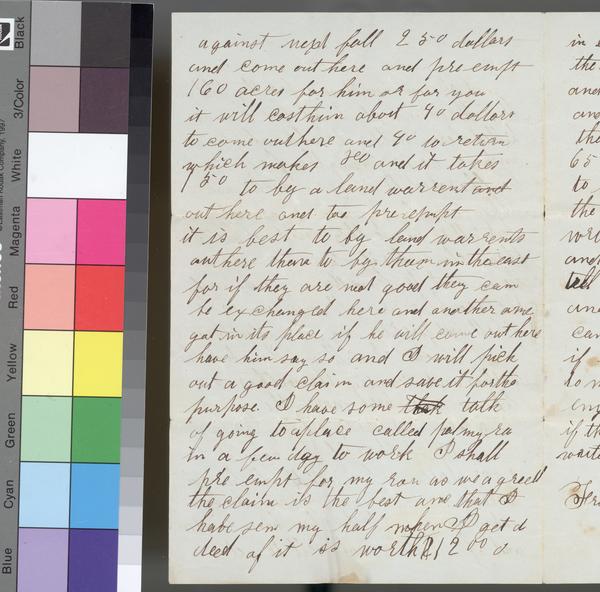 Black
3/Color
White
Magenta
Red
Yellow
Green
Cyan
Blue
against next fall 250 dollars
and come out here and pre empt
160 acres for him or for you
it will cost him about 40 dollars
to come out here and 40 to return
which makes 80 and it takes
150 to by a land warrent and
out here and too pre empt
it is best to by land warrents
out here than to by them in the east
for if they are not good they can
be exchanged here and another one
got in its place if he will come out here
have him say so and I will pick
out a good claim and save it for the
purpose. I have some talk
of going to a place called palmyra
in a few day to work I shall
pre empt for my as we agreed
the claim is the best one that I
have sen my half when I get a
deed of it is worth $1200
in
the
and
and
65
to
the
and
tell
and
can
if
if th